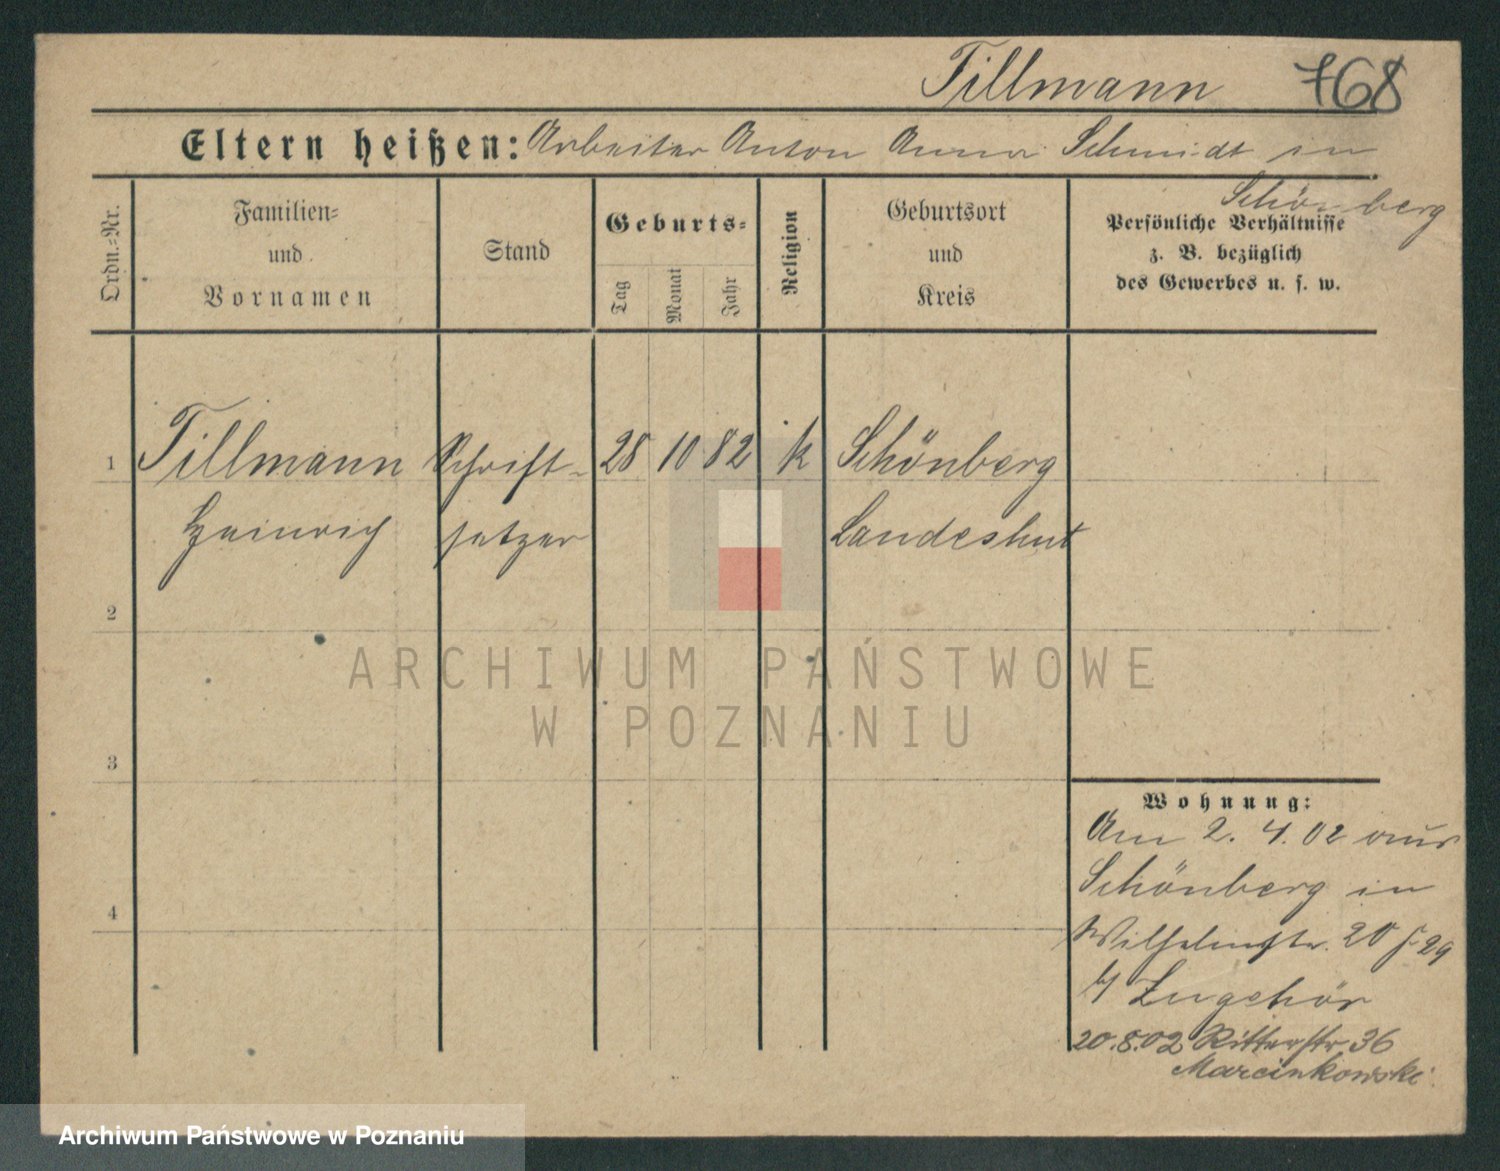 Tillmann 768
Eltern heißen: Arbeiter Anton Anna Schmidt in
Schönberg
Ordn.-Nr.
Familien-
und
Vornamen
Stand
Geburts-
Tag
Monat
Jahr
Religion
Geburtsort
und
Kreis
Persönliche Verhältnisse
z. B. bezüglich
des Gewerbes u. s. w.
1 Tillmann Schrift- 28 10 82 k Schönberg
Heinrich setzer Landeshut
2
3
4
ARCHIWUM PAŃSTWOWE
W POZNANIU
Wohnung:
Am 2. 4. 02 aus
Schönberg in
Wilhelmstr. 20
b/ Zugehör
20.8.02 Ritterstr 36
Marcinkowski
Archiwum Państwowe w Poznaniu